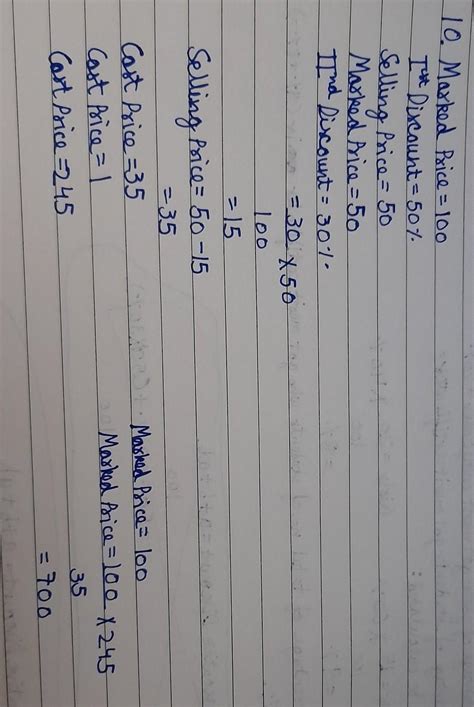 10. Marked Price = 100
Ist Discount = 50%
Selling Price = 50
Marked Price = 50
IInd Discount = 30%
= 30 x 50
100
= 15
Selling Price = 50 - 15
= 35
Cost Price = 35 Marked Price = 100
Cost Price = 1 Marked Price = 100 x 245
35
Cost Price = 245 = 700